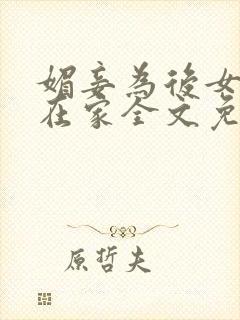 媚妾為後女
在家全文免
原哲夫